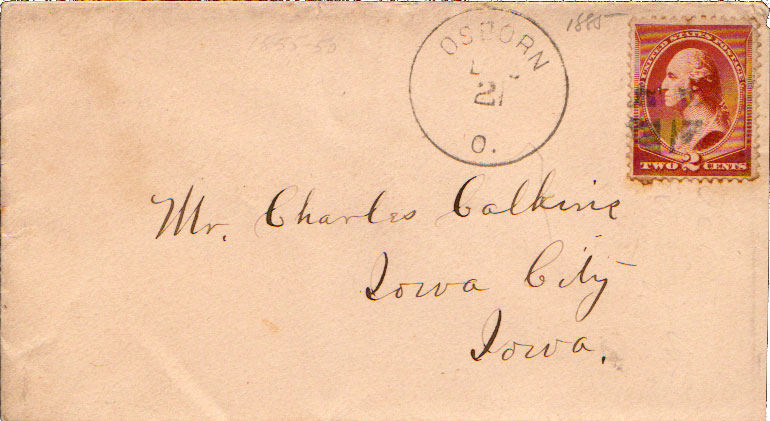 1885
OSBORN
21
O.
UNITED STATES POSTAGE
TWO 2 CENTS
Mr. Charles Calkins
Iowa City
Iowa.